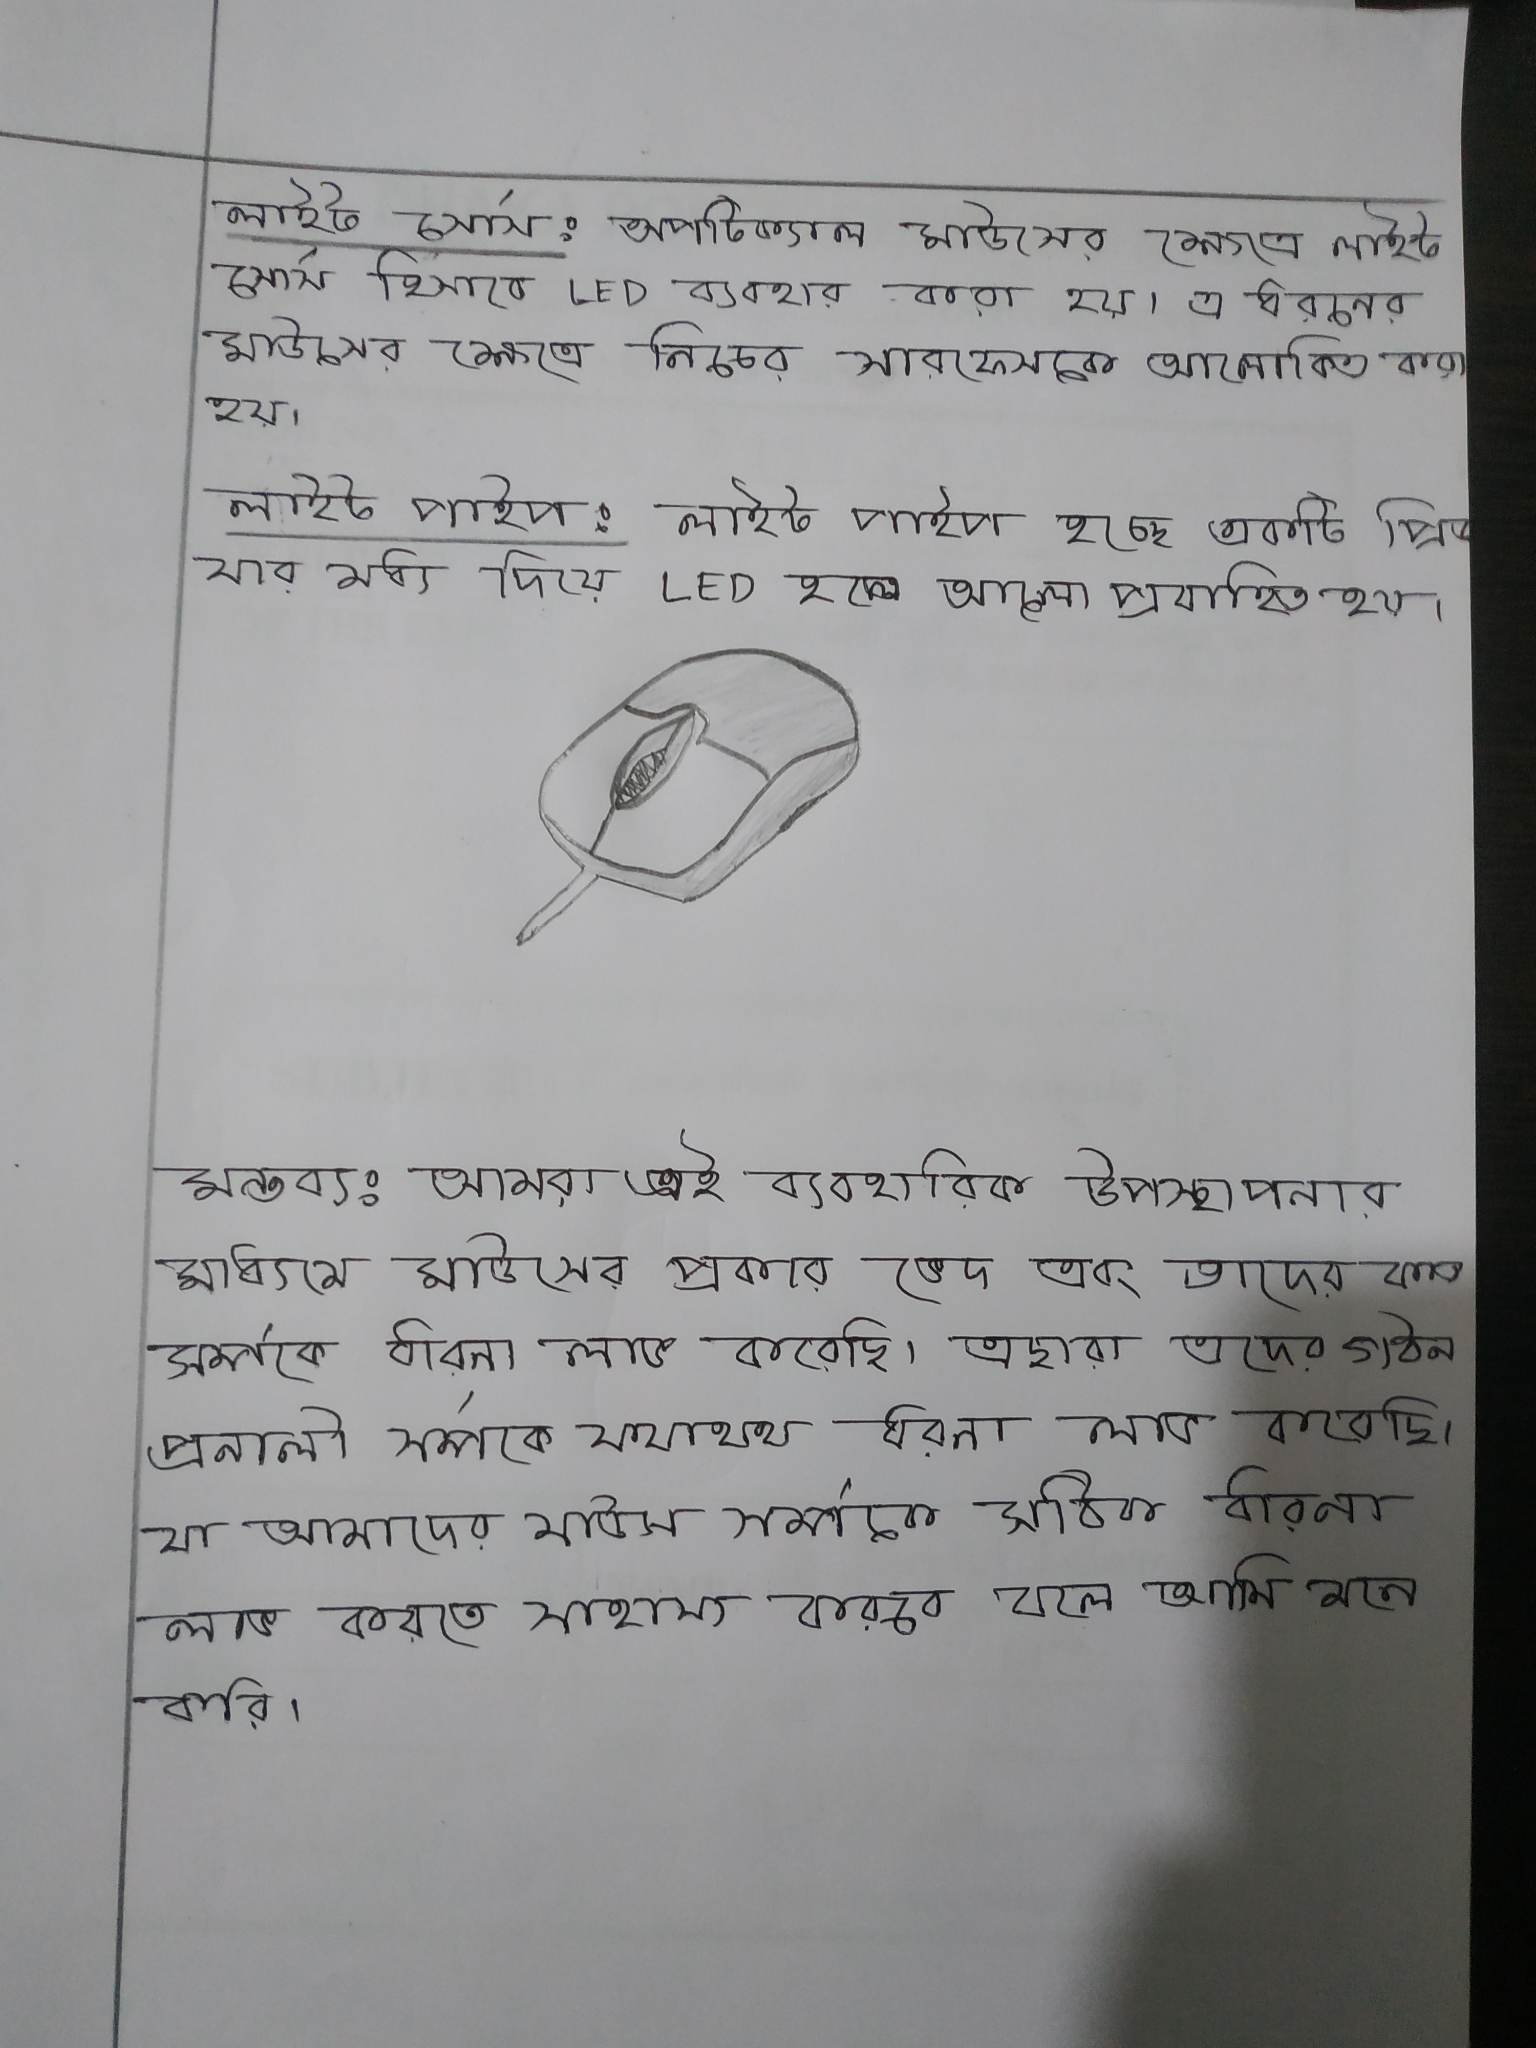 লাইট সোর্স: অপটিক্যাল মাউসের ক্ষেত্রে লাইট
সোর্স হিসাবে LED ব্যবহার করা হয়। এ ধরনের
মাউসের ক্ষেত্রে নিচের সারফেসকে আলোকিত করা
হয়।
লাইট পাইপ: লাইট পাইপ হচ্ছে একটি
যার মধ্য দিয়ে LED হতে আলো প্রবাহিত হয়।
মন্তব্য: আমরা এই ব্যবহারিক উপস্থাপনার
মাধ্যমে মাউসের প্রকার ভেদ এবং তাদের কাজ
সর্ম্পকে ধারনা লাভ করেছি। এছারা এদের গঠন
প্রনালী সর্ম্পকে যথাযথ ধারনা লাভ করেছি।
যা আমাদের মাউস সর্ম্পকে সঠিক ধারনা
লাভ করতে সাহায্য করবে বলে আমি মনে
করি।